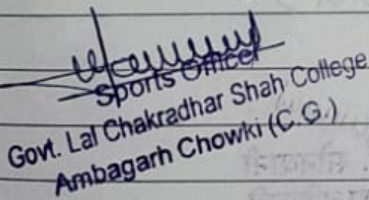 Sports Officer
Govt. Lal Chakradhar Shah College
Ambagarh Chowki (C.G.)